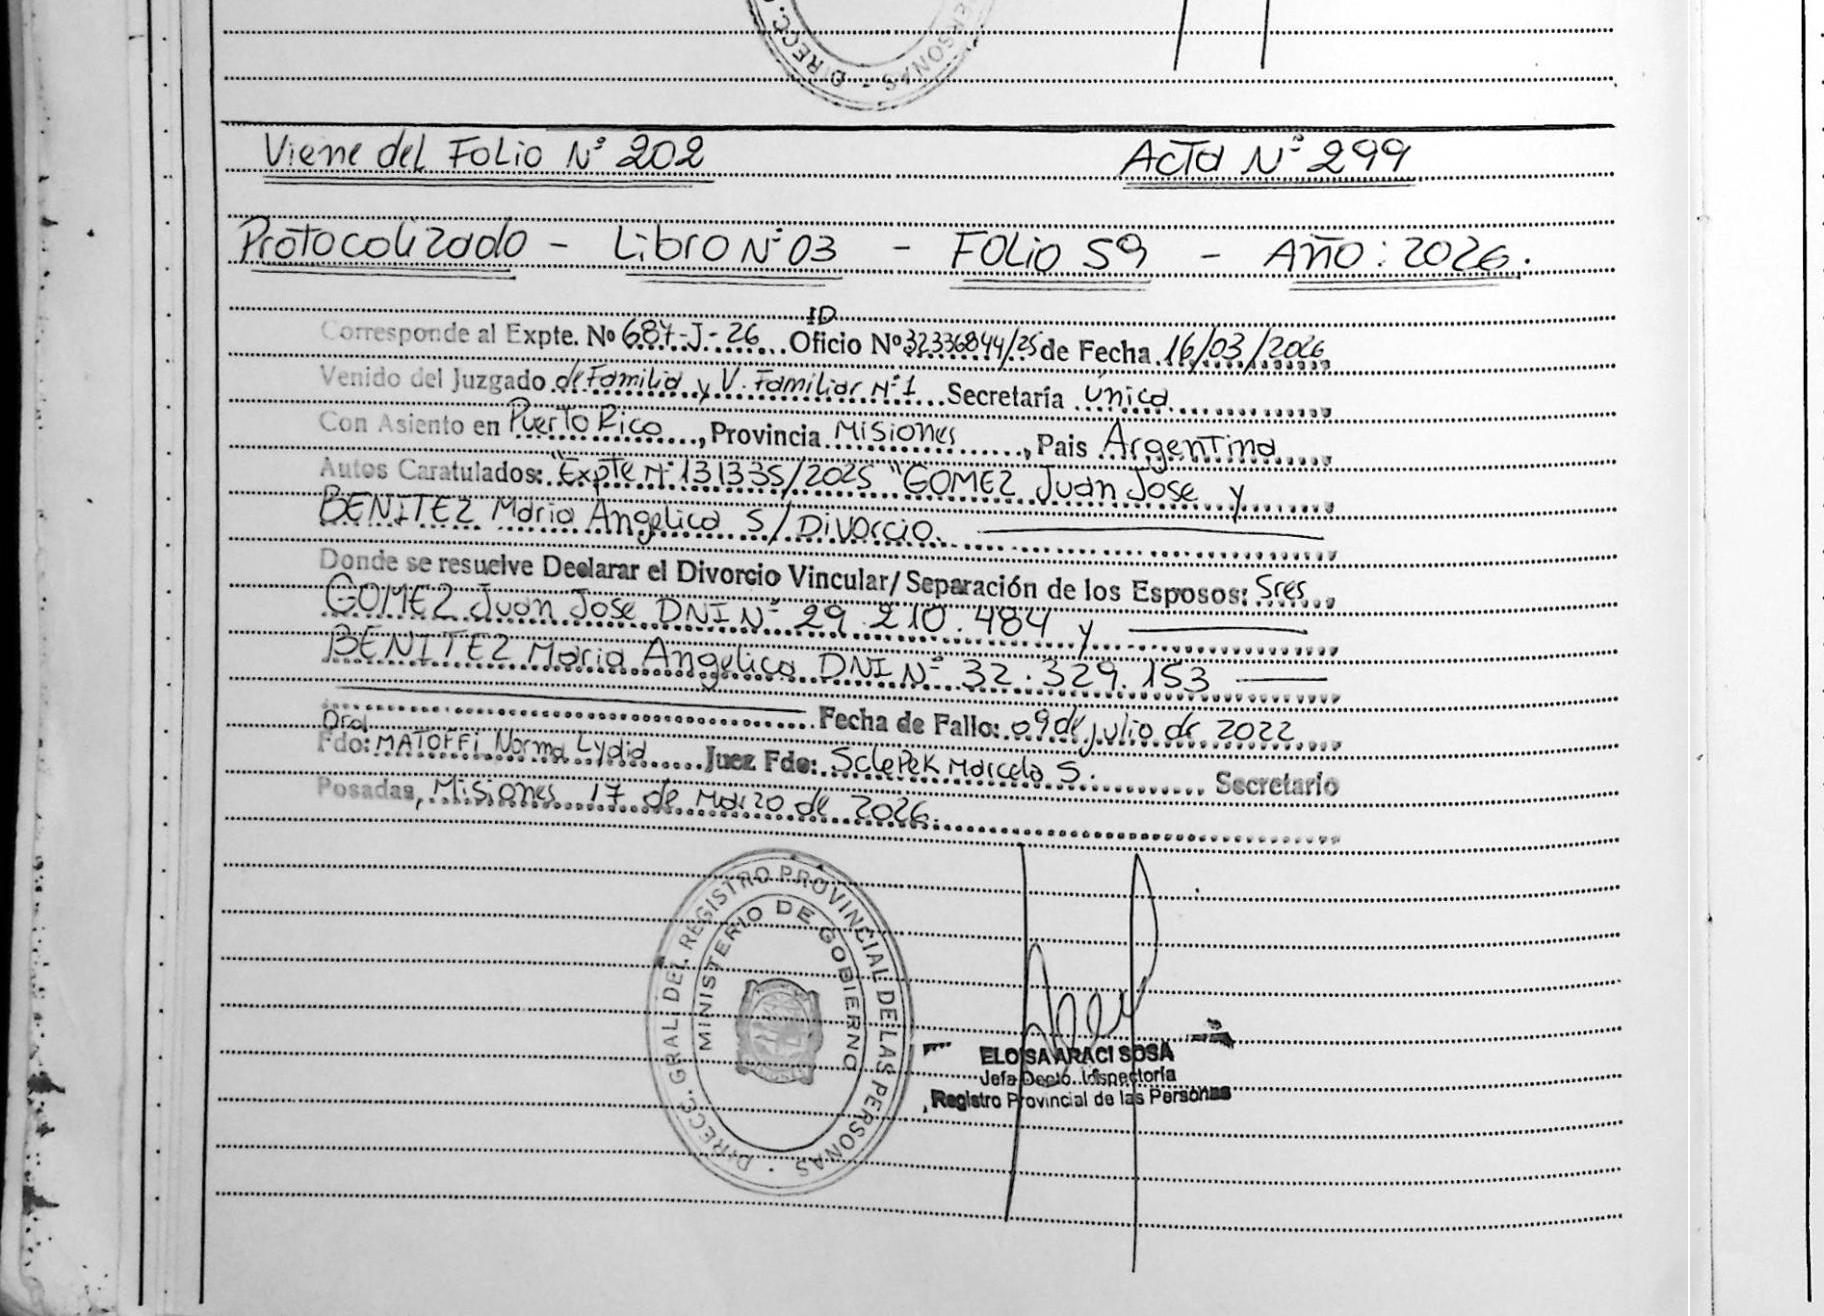 DIRECC. PERSONAS -
Viene del Folio Nº 202
Acta Nº 299
Protocolizado - Libro Nº 03 - Folio 59 - Año: 2026.
ID
Corresponde al Expte. Nº 687-J-26 Oficio Nº 32336844/25 de Fecha 16/03/2026
Venido del Juzgado de Familia y V. Familiar Nº 1 Secretaría Única
Con Asiento en Puerto Rico, Provincia Misiones, Pais Argentina
Autos Caratulados: "Expte Nº 131335/2025 "GOMEZ Juan Jose y
BENITEZ Maria Angelica S/Divorcio.
Donde se resuelve Declarar el Divorcio Vincular/ Separación de los Esposos: Sres
GOMEZ Juan Jose DNI Nº 29.210.484 y
BENITEZ Maria Angelica DNI Nº 32.329.153
Fecha de Fallo: 09 de julio de 2022
Dra.
Fdo: MATOFFI Norma Lydia Juez Fdo: Sclepek Marcela S. Secretario
Posadas, Misiones 17 de Marzo de 2026.
DIRECC. GRAL. DEL REGISTRO PROVINCIAL DE LAS PERSONAS -
MINISTERIO DE GOBIERNO
ELOISA ARACI SOSA
Jefa Depto. Inspectoría
Registro Provincial de las Personas